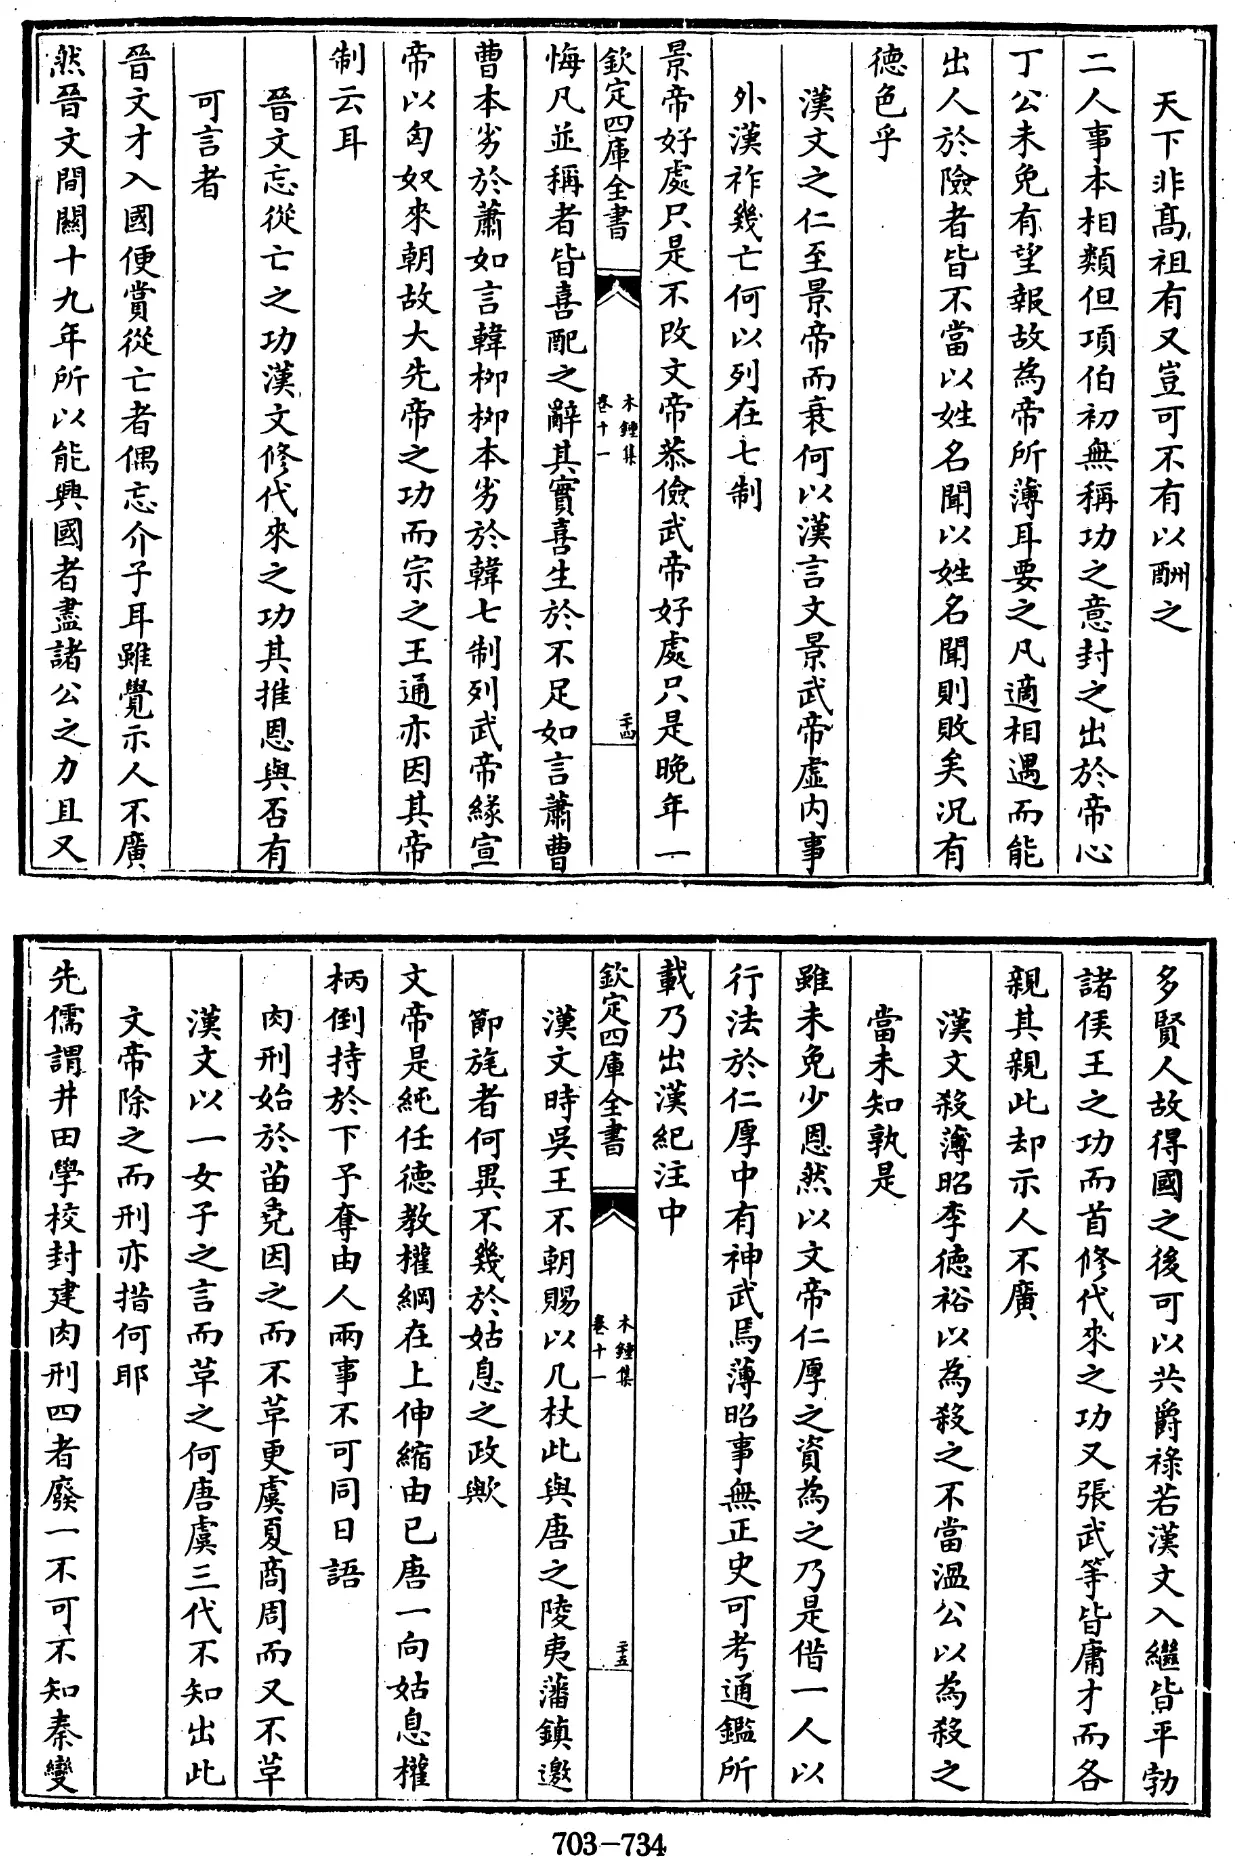 天下非髙祖有又豈可不有以酬之
二人事本相類但項伯初無稱功之意封之出於帝心
丁公未免有望報故為帝所薄耳要之凡適相遇而能
出人於險者皆不當以姓名聞以姓名聞則敗矣况有
德色乎
漢文之仁至景帝而衰何以漢言文景武帝虛内事
外漢祚幾亡何以列在七制
景帝好處只是不改文帝恭儉武帝好處只是晚年一
欽定四庫全書
木鍾集
卷十一
二十四
悔凡並稱者皆喜配之辭其實喜生於不足如言蕭曹
曹本劣於蕭如言韓栁栁本劣於韓七制列武帝緣宣
帝以匈奴來朝故大先帝之功而宗之王通亦因其帝
制云耳
晉文忘從亡之功漢文修代來之功其推恩與否有
可言者
晉文才入國便賞從亡者偶忘介子耳雖覺示人不廣
然晉文間闗十九年所以能興國者盡諸公之力且又
多賢人故得國之後可以共爵祿若漢文入繼皆平勃
諸侯王之功而首修代來之功又張武等皆庸才而各
親其親此却示人不廣
漢文殺薄昭李德裕以為殺之不當溫公以為殺之
當未知孰是
雖未免少恩然以文帝仁厚之資為之乃是借一人以
行法於仁厚中有神武焉薄昭事無正史可考通鑑所
載乃出漢紀注中
欽定四庫全書
木鍾集
卷十一
二十五
漢文時吳王不朝賜以几杖此與唐之陵夷藩鎮邀
節旄者何異不幾於姑息之政歟
文帝是純任德教權綱在上伸縮由已唐一向姑息權
柄倒持於下予奪由人兩事不可同日語
肉刑始於苗堯因之而不革更虞夏商周而又不革
漢文以一女子之言而革之何唐虞三代不知出此
文帝除之而刑亦措何耶
先儒謂井田學校封建肉刑四者廢一不可不知秦變
703-734